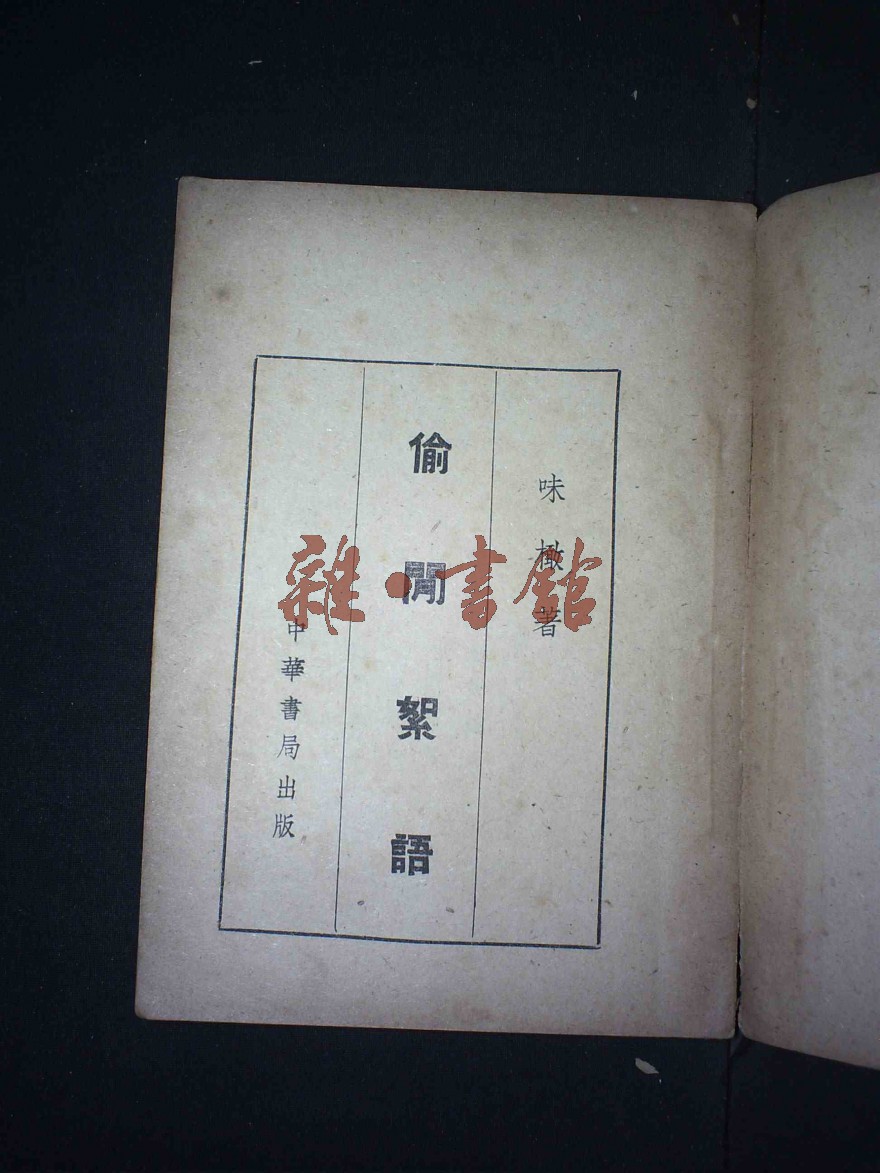 味橄著
偷閒絮語
中華書局出版
雜·書館